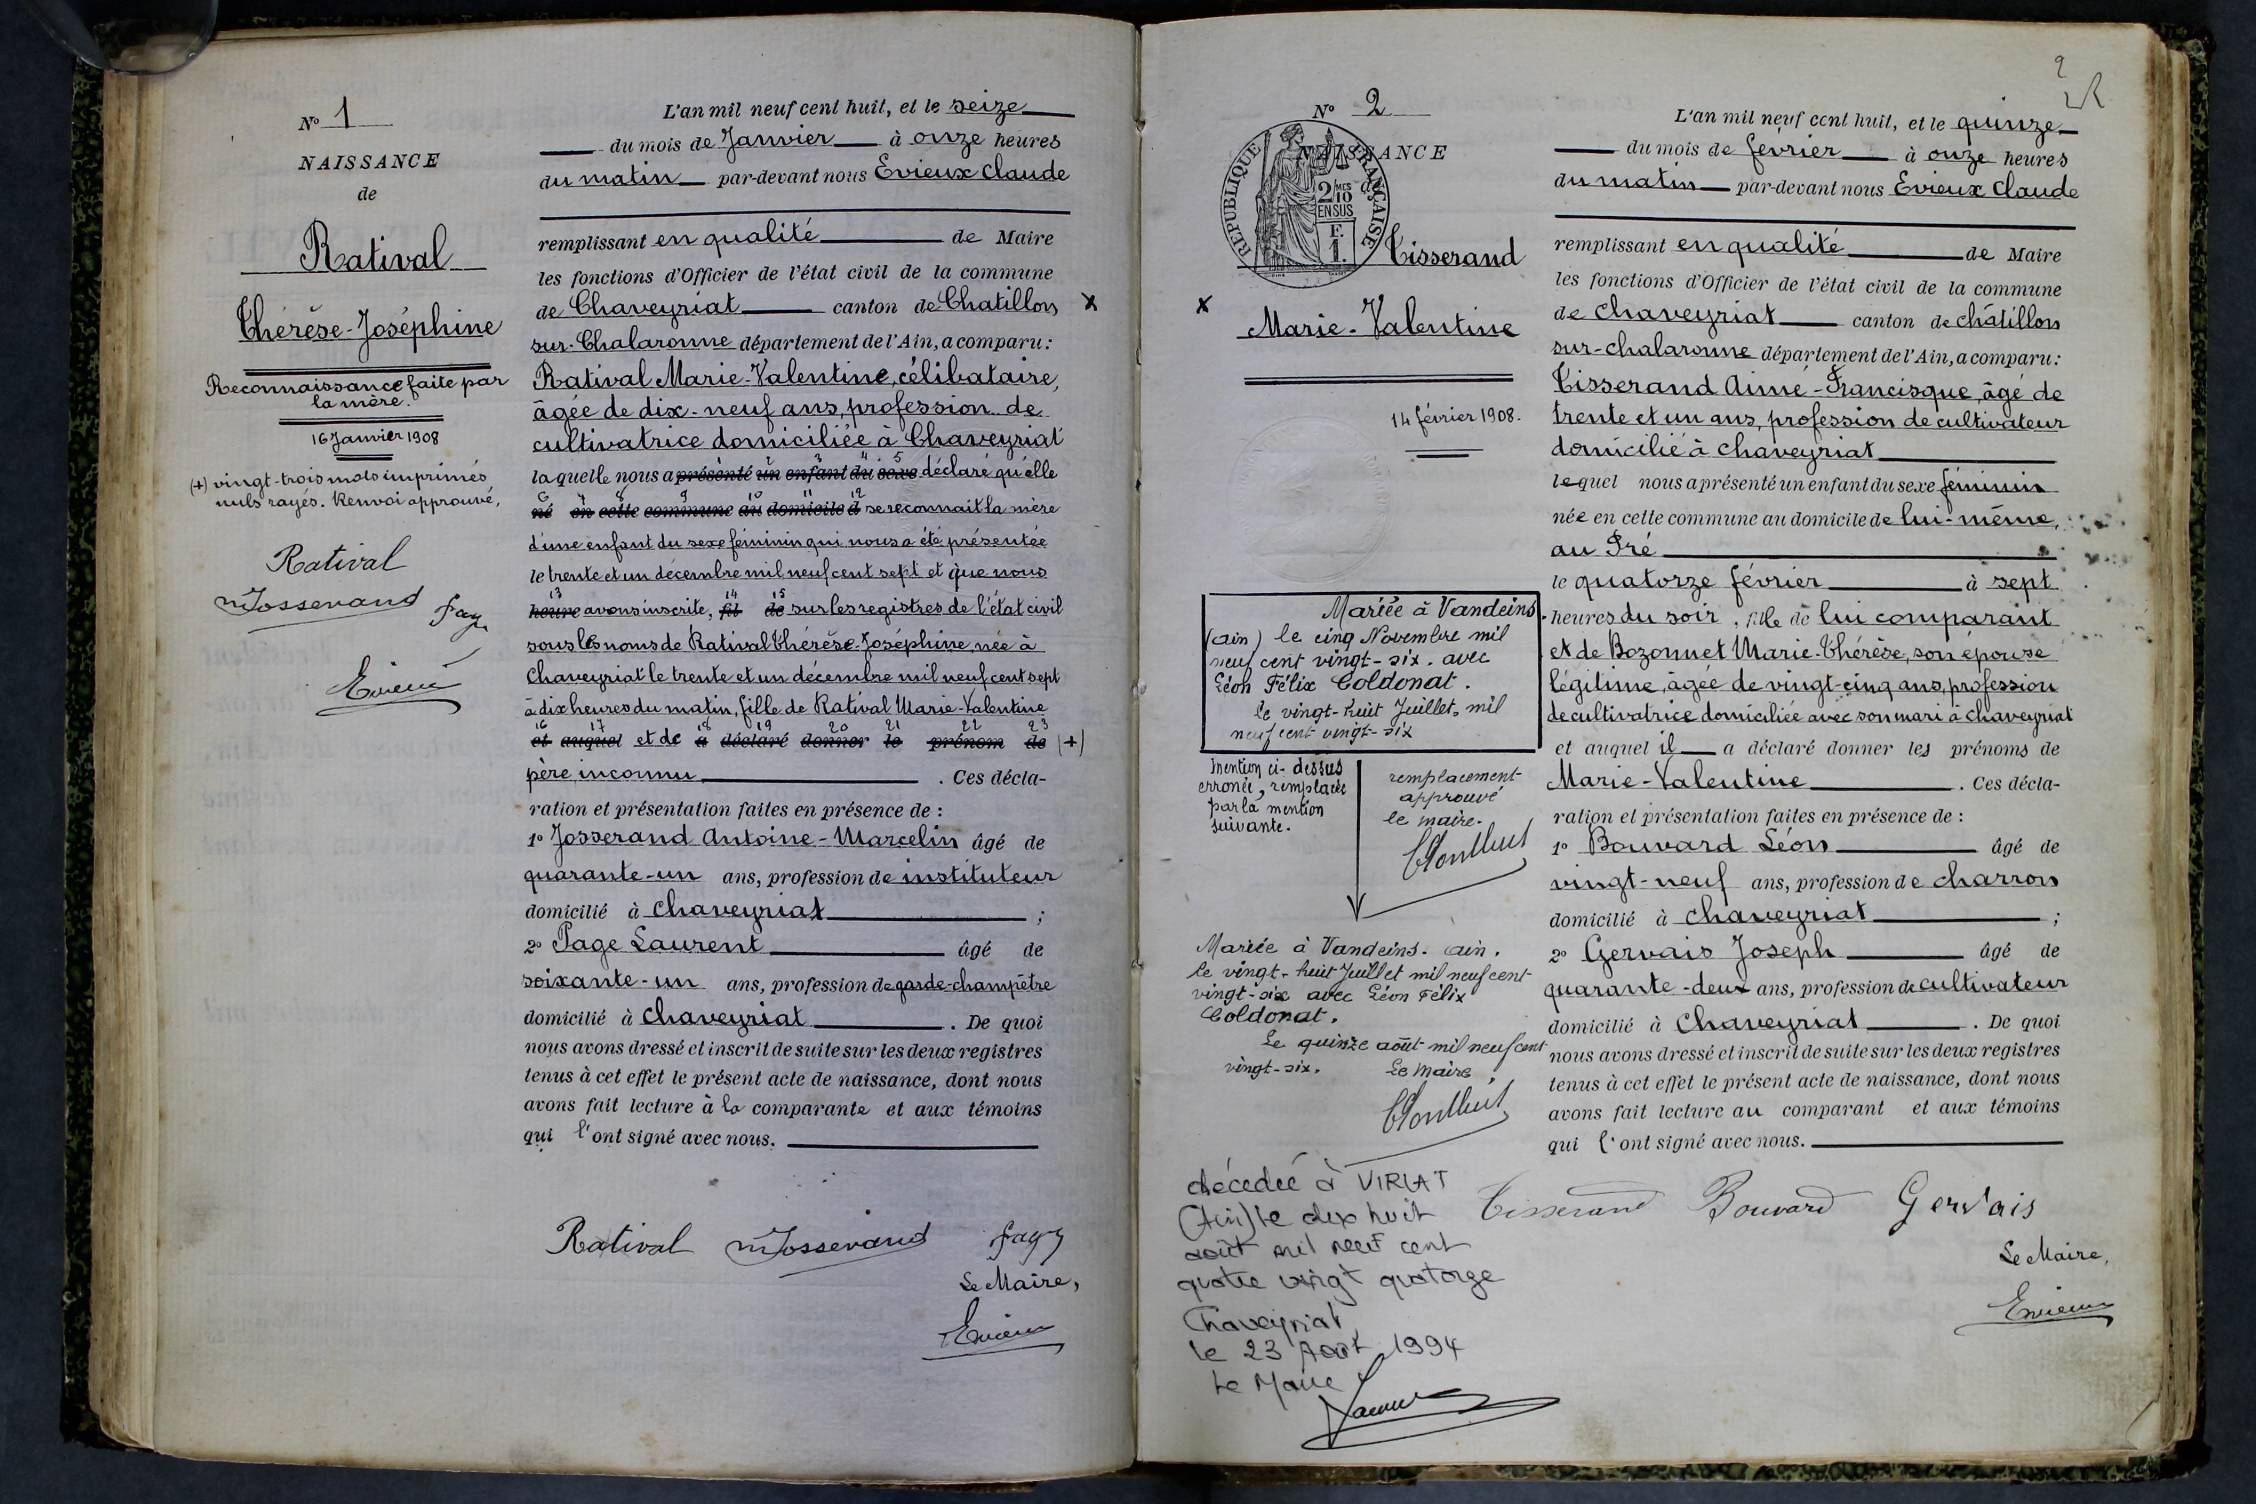 N° 1
NAISSANCE
de
Ratival
Thérèse-Joséphine
Reconnaissance faite par
la mère.
16 Janvier 1908
(+) vingt-trois mots imprimés
nuls rayés. Renvoi approuvé,
Ratival
Josserand
Evieux
L'an mil neuf cent huit, et le seize
du mois de Janvier à onze heures
du matin par-devant nous Evieux Claude
remplissant en qualité de Maire
les fonctions d'Officier de l'état civil de la commune
de Chaveyriat canton de Chatillon
sur-Chalaronne département de l'Ain, a comparu:
Ratival Marie-Valentine, célibataire,
âgée de dix-neuf ans, profession de
cultivatrice domiciliée à Chaveyriat
laquelle nous a présenté un enfant du sexe déclaré qu'elle
né en cette commune au domicile d se reconnait la mère
d'une enfant du sexe féminin qui nous a été présentée
le trente et un décembre mil neuf cent sept et que nous
heure avons inscrite, fil de sur les registres de l'état civil
sous les noms de Ratival Thérèse-Joséphine née à
Chaveyriat le trente et un décembre mil neuf cent sept
à dix heures du matin, fille de Ratival Marie-Valentine
16 17 18 19 20 21 22 23
et auquel et de a déclaré donner le prénom de (+)
père inconnu . Ces décla-
ration et présentation faites en présence de :
1° Josserand Antoine-Marcelin âgé de
quarante-un ans, profession de instituteur
domicilié à Chaveyriat ;
2° Page Laurent âgé de
soixante-un ans, profession de garde-champêtre
domicilié à Chaveyriat . De quoi
nous avons dressé et inscrit de suite sur les deux registres
tenus à cet effet le présent acte de naissance, dont nous
avons fait lecture à la comparante et aux témoins
qui l'ont signé avec nous.
Ratival Josserand
Le Maire,
Evieux
2
N° 2
NAISSANCE
de
RÉPUBLIQUE FRANÇAISE
2/10 MES
EN SUS
F.
1.
Tisserand
Marie-Valentine
14 février 1908.
Mariée à Vandeins
(ain) le cinq Novembre mil
neuf cent vingt-six. avec
Léon Félix Coldonat.
le vingt-huit Juillet, mil
neuf cent vingt-six
Mention ci-dessus
erronée, remplacée
par la mention
suivante.
remplacement
approuvé
le maire.
Mariée à Vandeins. ain.
le vingt-huit Juillet mil neuf cent
vingt-six avec Léon Félix
Coldonat.
Le quinze août mil neuf cent
vingt-six. Le Maire,
décédée à VIRIAT
(Ain) le dix huit
août mil neuf cent
quatre vingt quatorze
Chaveyriat
le 23 Août 1994
Le Maire
L'an mil neuf cent huit, et le quinze
du mois de février à onze heures
du matin par-devant nous Evieux Claude
remplissant en qualité de Maire
les fonctions d'Officier de l'état civil de la commune
de Chaveyriat canton de châtillon
sur-chalaronne département de l'Ain, a comparu:
Tisserand Aimé-Francisque, âgé de
trente et un ans, profession de cultivateur
domicilié à Chaveyriat
lequel nous a présenté un enfant du sexe féminin
née en cette commune au domicile de lui-même,
au Pré
le quatorze février à sept
heures du soir, fille de lui comparant
et de Bozonnet Marie-Thérèse, son épouse
légitime, âgée de vingt-cinq ans, profession
de cultivatrice domiciliée avec son mari à Chaveyriat
et auquel il a déclaré donner les prénoms de
Marie-Valentine . Ces décla-
ration et présentation faites en présence de :
1° Bouvard Léon âgé de
vingt-neuf ans, profession de charron
domicilié à Chaveyriat ;
2° Gervais Joseph âgé de
quarante-deux ans, profession de cultivateur
domicilié à Chaveyriat . De quoi
nous avons dressé et inscrit de suite sur les deux registres
tenus à cet effet le présent acte de naissance, dont nous
avons fait lecture au comparant et aux témoins
qui l'ont signé avec nous.
Tisserand Bouvard Gervais
Le Maire,
Evieux